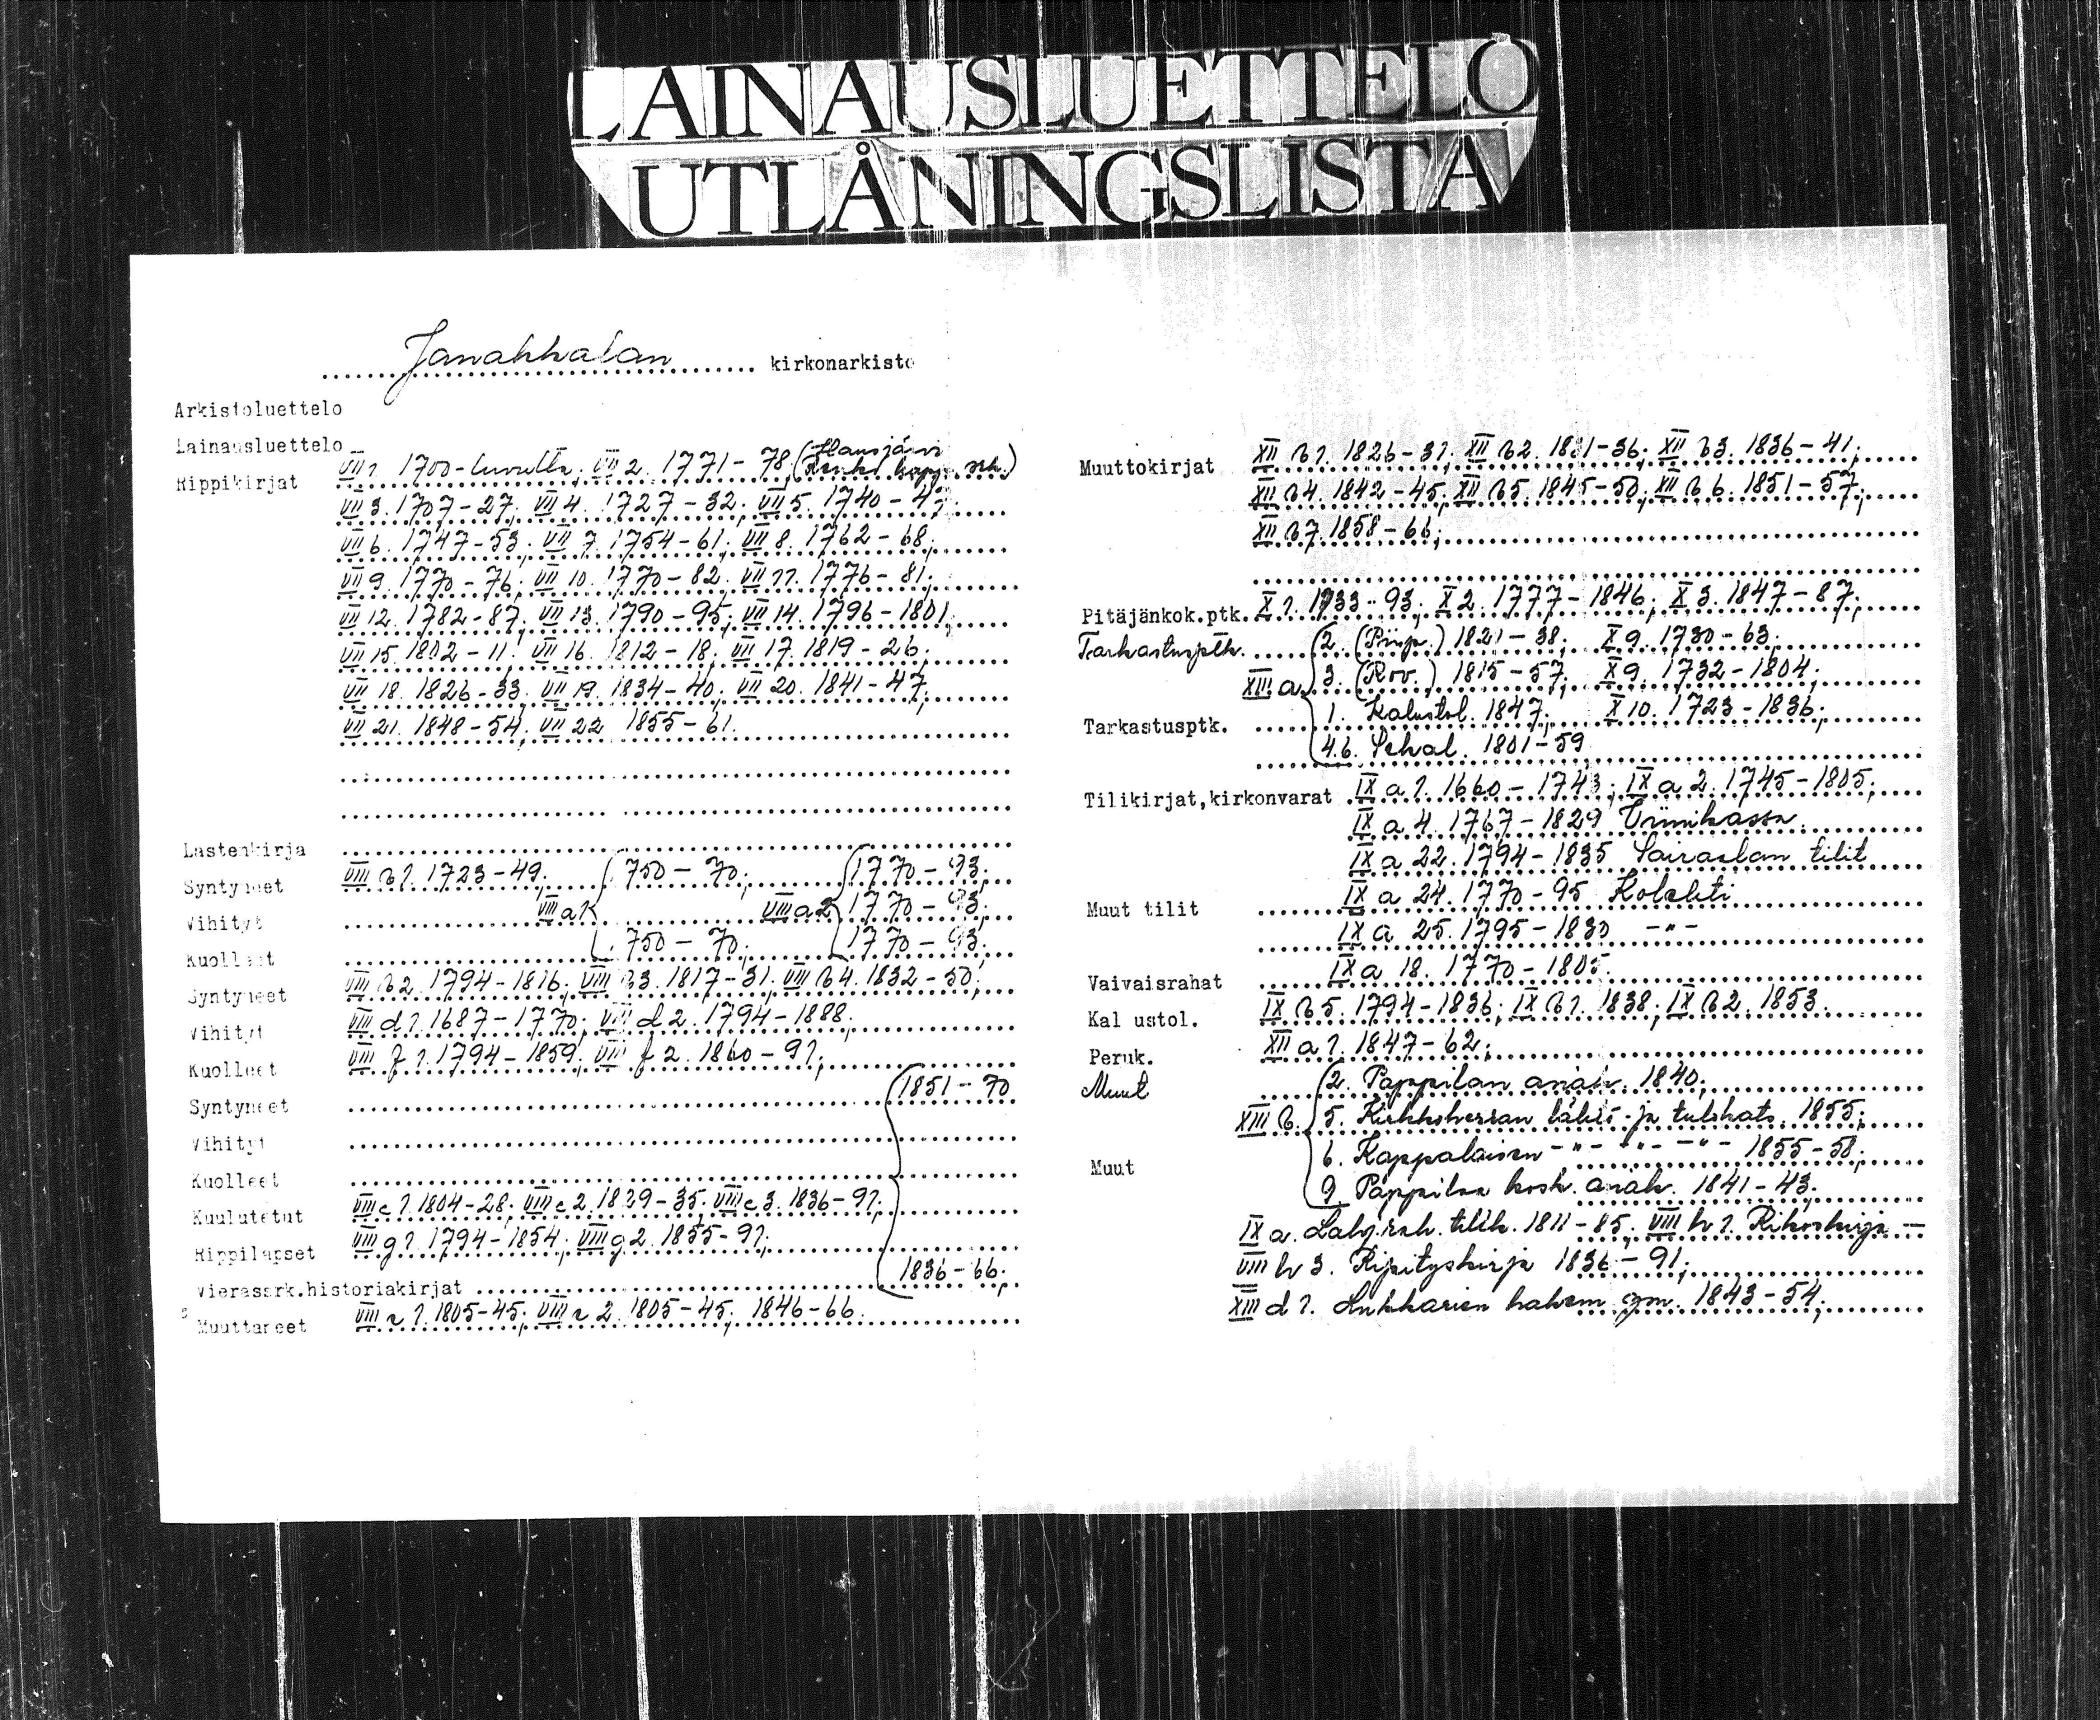 LAINAUSLUETTELO
UTLÅNINGSLISTA
Janakkalan kirkonarkisto
Arkistoluettelo
Lainausluettelo
Rippikirjat VII 1. 1700-luvulta; VII 2. 1771-78 (Hausjärvi
VII 3. 1707-27; VII 4. 1727-32; VII 5. 1740-
VII 6. 1747-53; VII 7. 1754-61; VII 8. 1762-68;
VII 9. 1770-76; VII 10. 1770-82; VII 11. 1776-81;
VII 12. 1782-87; VII 13. 1790-95; VII 14. 1796-1801;
VII 15. 1802-11; VII 16. 1812-18; VII 17. 1819-26;
VII 18. 1826-33; VII 19. 1834-40; VII 20. 1841-47;
VII 21. 1848-54; VII 22. 1855-61.
Lastenkirja
Syntyneet VIII b 1. 1723-49; 750-70; 1770-93;
Vihityt VIII a 1 VIII a 2 1770-93;
Kuolleet 750-70; 1770-93;
Syntyneet VIII b 2. 1794-1816; VIII b 3. 1817-31; VIII b 4. 1832-50;
Vihityt VIII d 1. 1687-1770; VIII d 2. 1794-1888;
Kuolleet VIII f 1. 1794-1859; VIII f 2. 1860-91;
Syntyneet 1851-70
Vihityt
Kuolleet
Kuulutetut VIII c 1. 1804-28; VIII c 2. 1829-35; VIII c 3. 1836-91;
Rippilapset VIII g 1. 1794-1854; VIII g 2. 1855-91;
Vierassrk.historiakirjat 1836-66;
Muuttaneet VIII 1. 1805-45; VIII 2. 1805-45; 1846-66.
Muuttokirjat XII b 1. 1826-31; XII b 2. 1831-36; XII b 3. 1836-41;
XII b 4. 1842-45; XII b 5. 1845-50; XII b 6. 1851-57;
XII b 7. 1858-66;
Pitäjänkok.ptk. X 1. 1733-93; X 2. 1777-1846; X 3. 1847-87;
Tarkastusptk. 2. (Piisp.) 1821-38; X 9. 1730-63;
XIII a 3. (Rov.) 1815-57; X 9. 1732-1804;
Tarkastusptk. 1. Kalustol. 1847; X 10. 1723-1836;
4.6. Sekal. 1801-59
Tilikirjat,kirkonvarat IX a 1. 1660-1743; IX a 2. 1745-1805;
IX a 4. 1767-1829 Viinikassa
IX a 22. 1794-1835 Sairaalan tilit
Muut tilit IX a 24. 1770-95 Kolehti
IX a 25. 1795-1830 -"-
Vaivaisrahat IX a 18. 1770-1805.
Kal ustol. IX b 5. 1794-1836; IX b 1. 1838; IX b 2. 1853.
Peruk. XII a 1. 1847-62;
Muut 2. Pappilan asiak. 1840;
XIII b. 5. Kirkkoherran lähtö- ja tulokats. 1855;
6. Kappalaisen -"- -"- -"- 1855-58;
Muut 9. Pappilaa kosk. asiak. 1841-43.
IX a. Lahj.rah. tilik. 1811-85; VIII h 1. Rikoskirja -
VIII h 3. Ripityskirja 1836-91;
XIII d 1. Lukkarien hakem. ym. 1843-54;